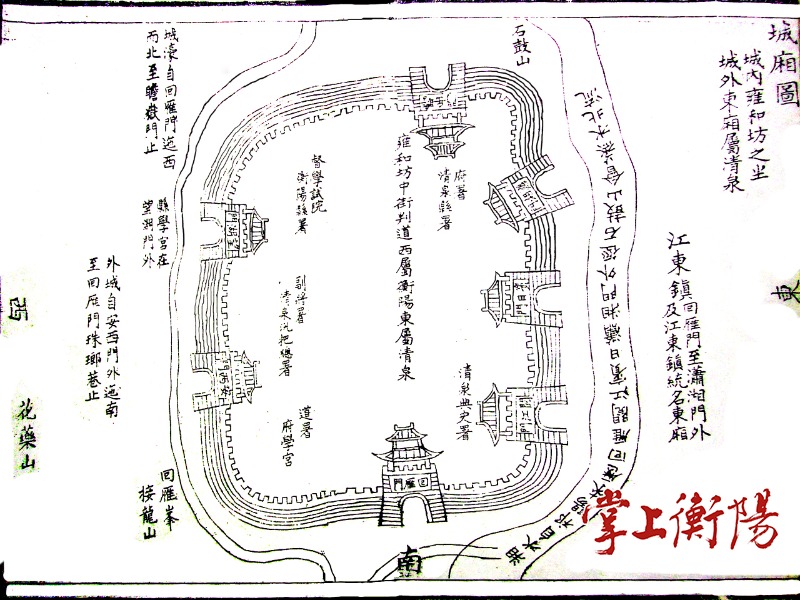 城廂圖
城內雍和坊之坐
城外東廂屬清泉
東
江東鎮回雁門至瀟湘門外
及江東鎮統名東廂
石鼓山
府署
清泉縣署
清泉典史署
雍和坊中街判道西屬衡陽東屬清泉
督學試院
衡陽縣署
副將署
清泉汛把總署
道署
府學宮
賓日門
回雁門
南
城濠自回雁門迤西
而北至瞻嶽門止
縣學宮在
望湖門外
外城自安西門外迤南
至回雁門珠瑯巷止
回雁峯
接龍山
花藥山
西
掌上衡陽